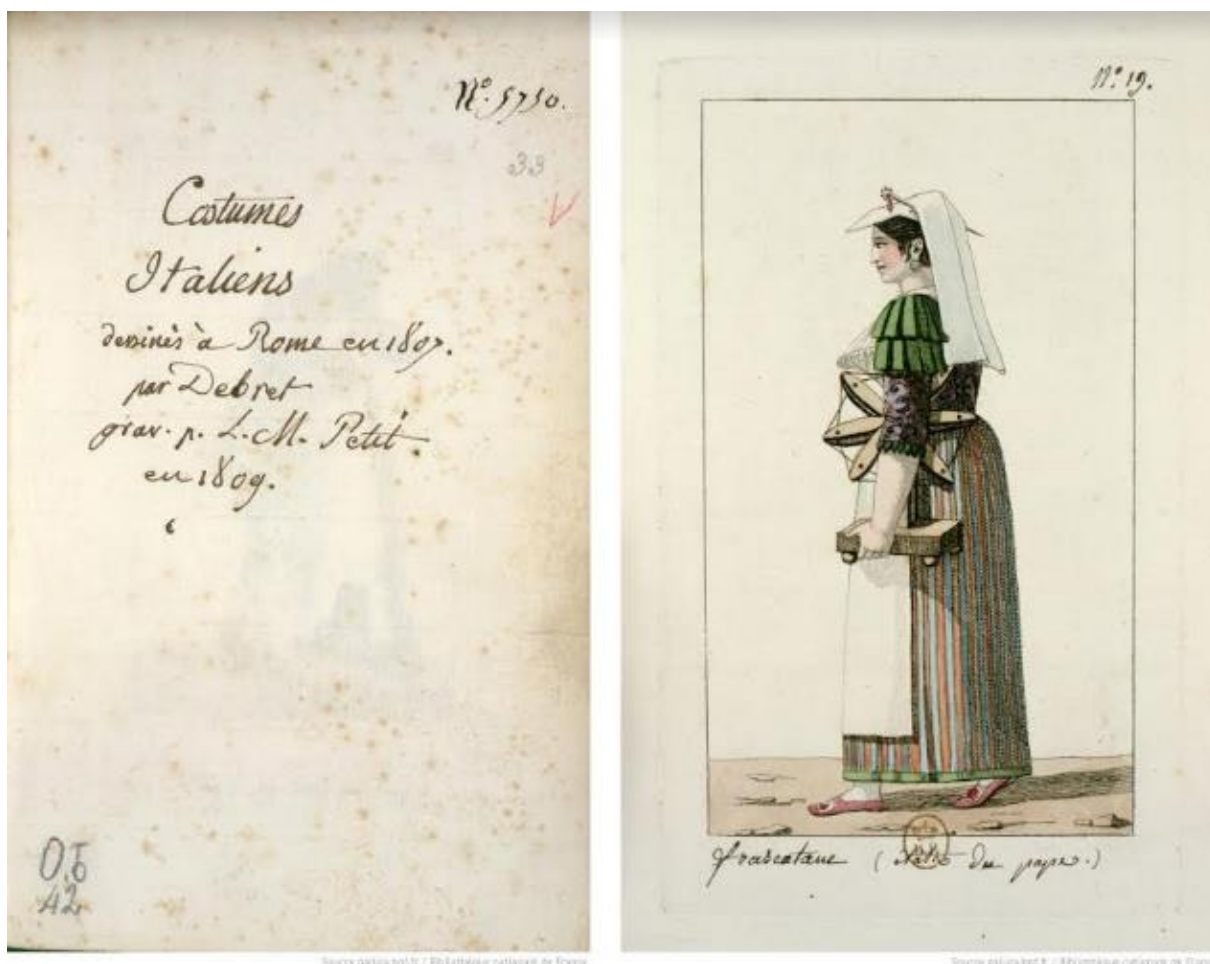 N.o 5750.
33
V
Costumes
Italiens
dessinés à Rome en 1807.
par Debret
grav. p. L. M. Petit.
en 1809.
Ob
42
Source gallica.bnf.fr / Bibliothèque nationale de France
N.o 19.
frascatane ( du pape.)
Source gallica.bnf.fr / Bibliothèque nationale de France